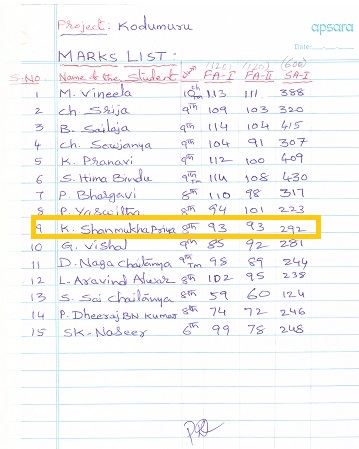 Project: Kodumuru
apsara
Date:
MARKS LIST:
(120) (120) (600)
S.NO. Name of the Student Class FA-I FA-II SA-I
1 M. Vineela 10th TM 113 111 388
2 Ch. Srija 9th 109 103 320
3 B. Sailaja 9th 114 104 415
4 Ch. Sowjanya 9th 104 91 307
5 K. Pranavi 9th 112 100 409
6 S. Hima Bindu 9th TM 114 108 430
7 P. Bhargavi 8th 110 98 317
8 P. Yaswitha 8th 94 101 223
9 K. Shanmukha Priya 8th 93 93 292
10 G. Vishal 9th 85 92 281
11 D. Naga Chaitanya 9th TM 98 89 244
12 L. Aravind 8th 102 95 238
13 S. Sai Chaitanya 8th 59 60 124
14 P. Dheeraj BN Kumar 8th 74 72 246
15 SK. Naseer 6th 99 78 248